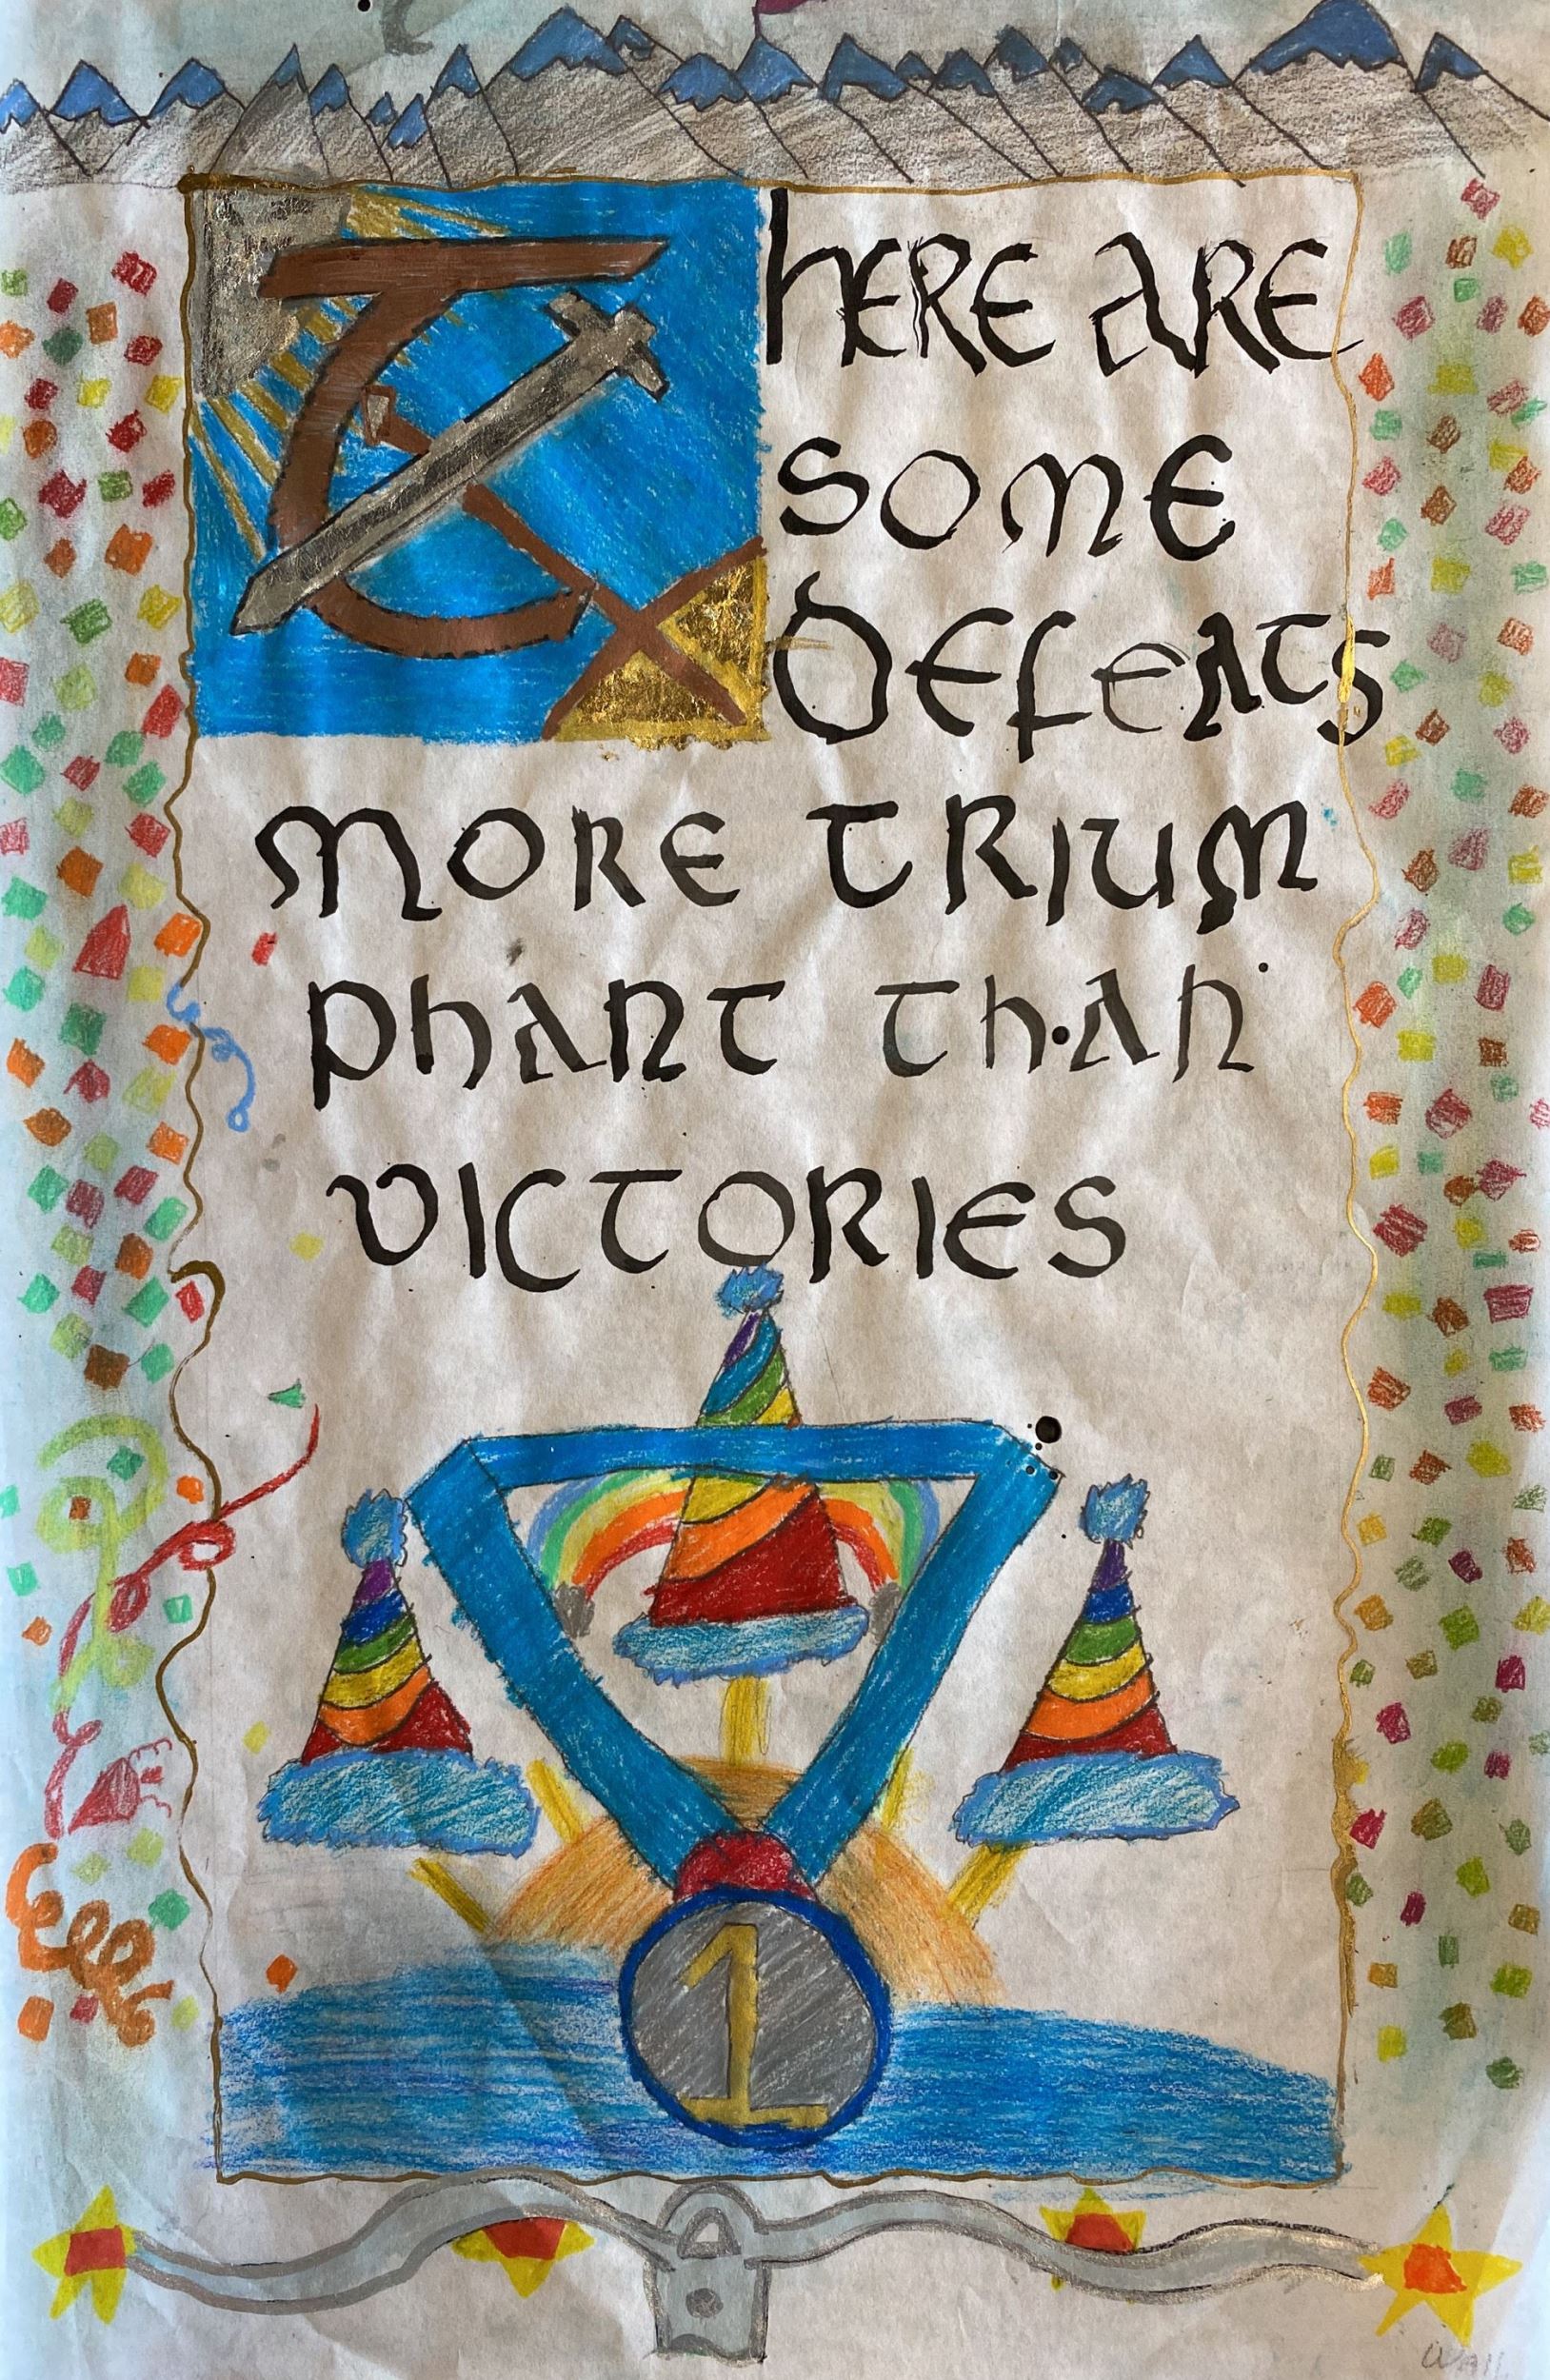 There are
some
Defeats
more trium
phant than
victories
1